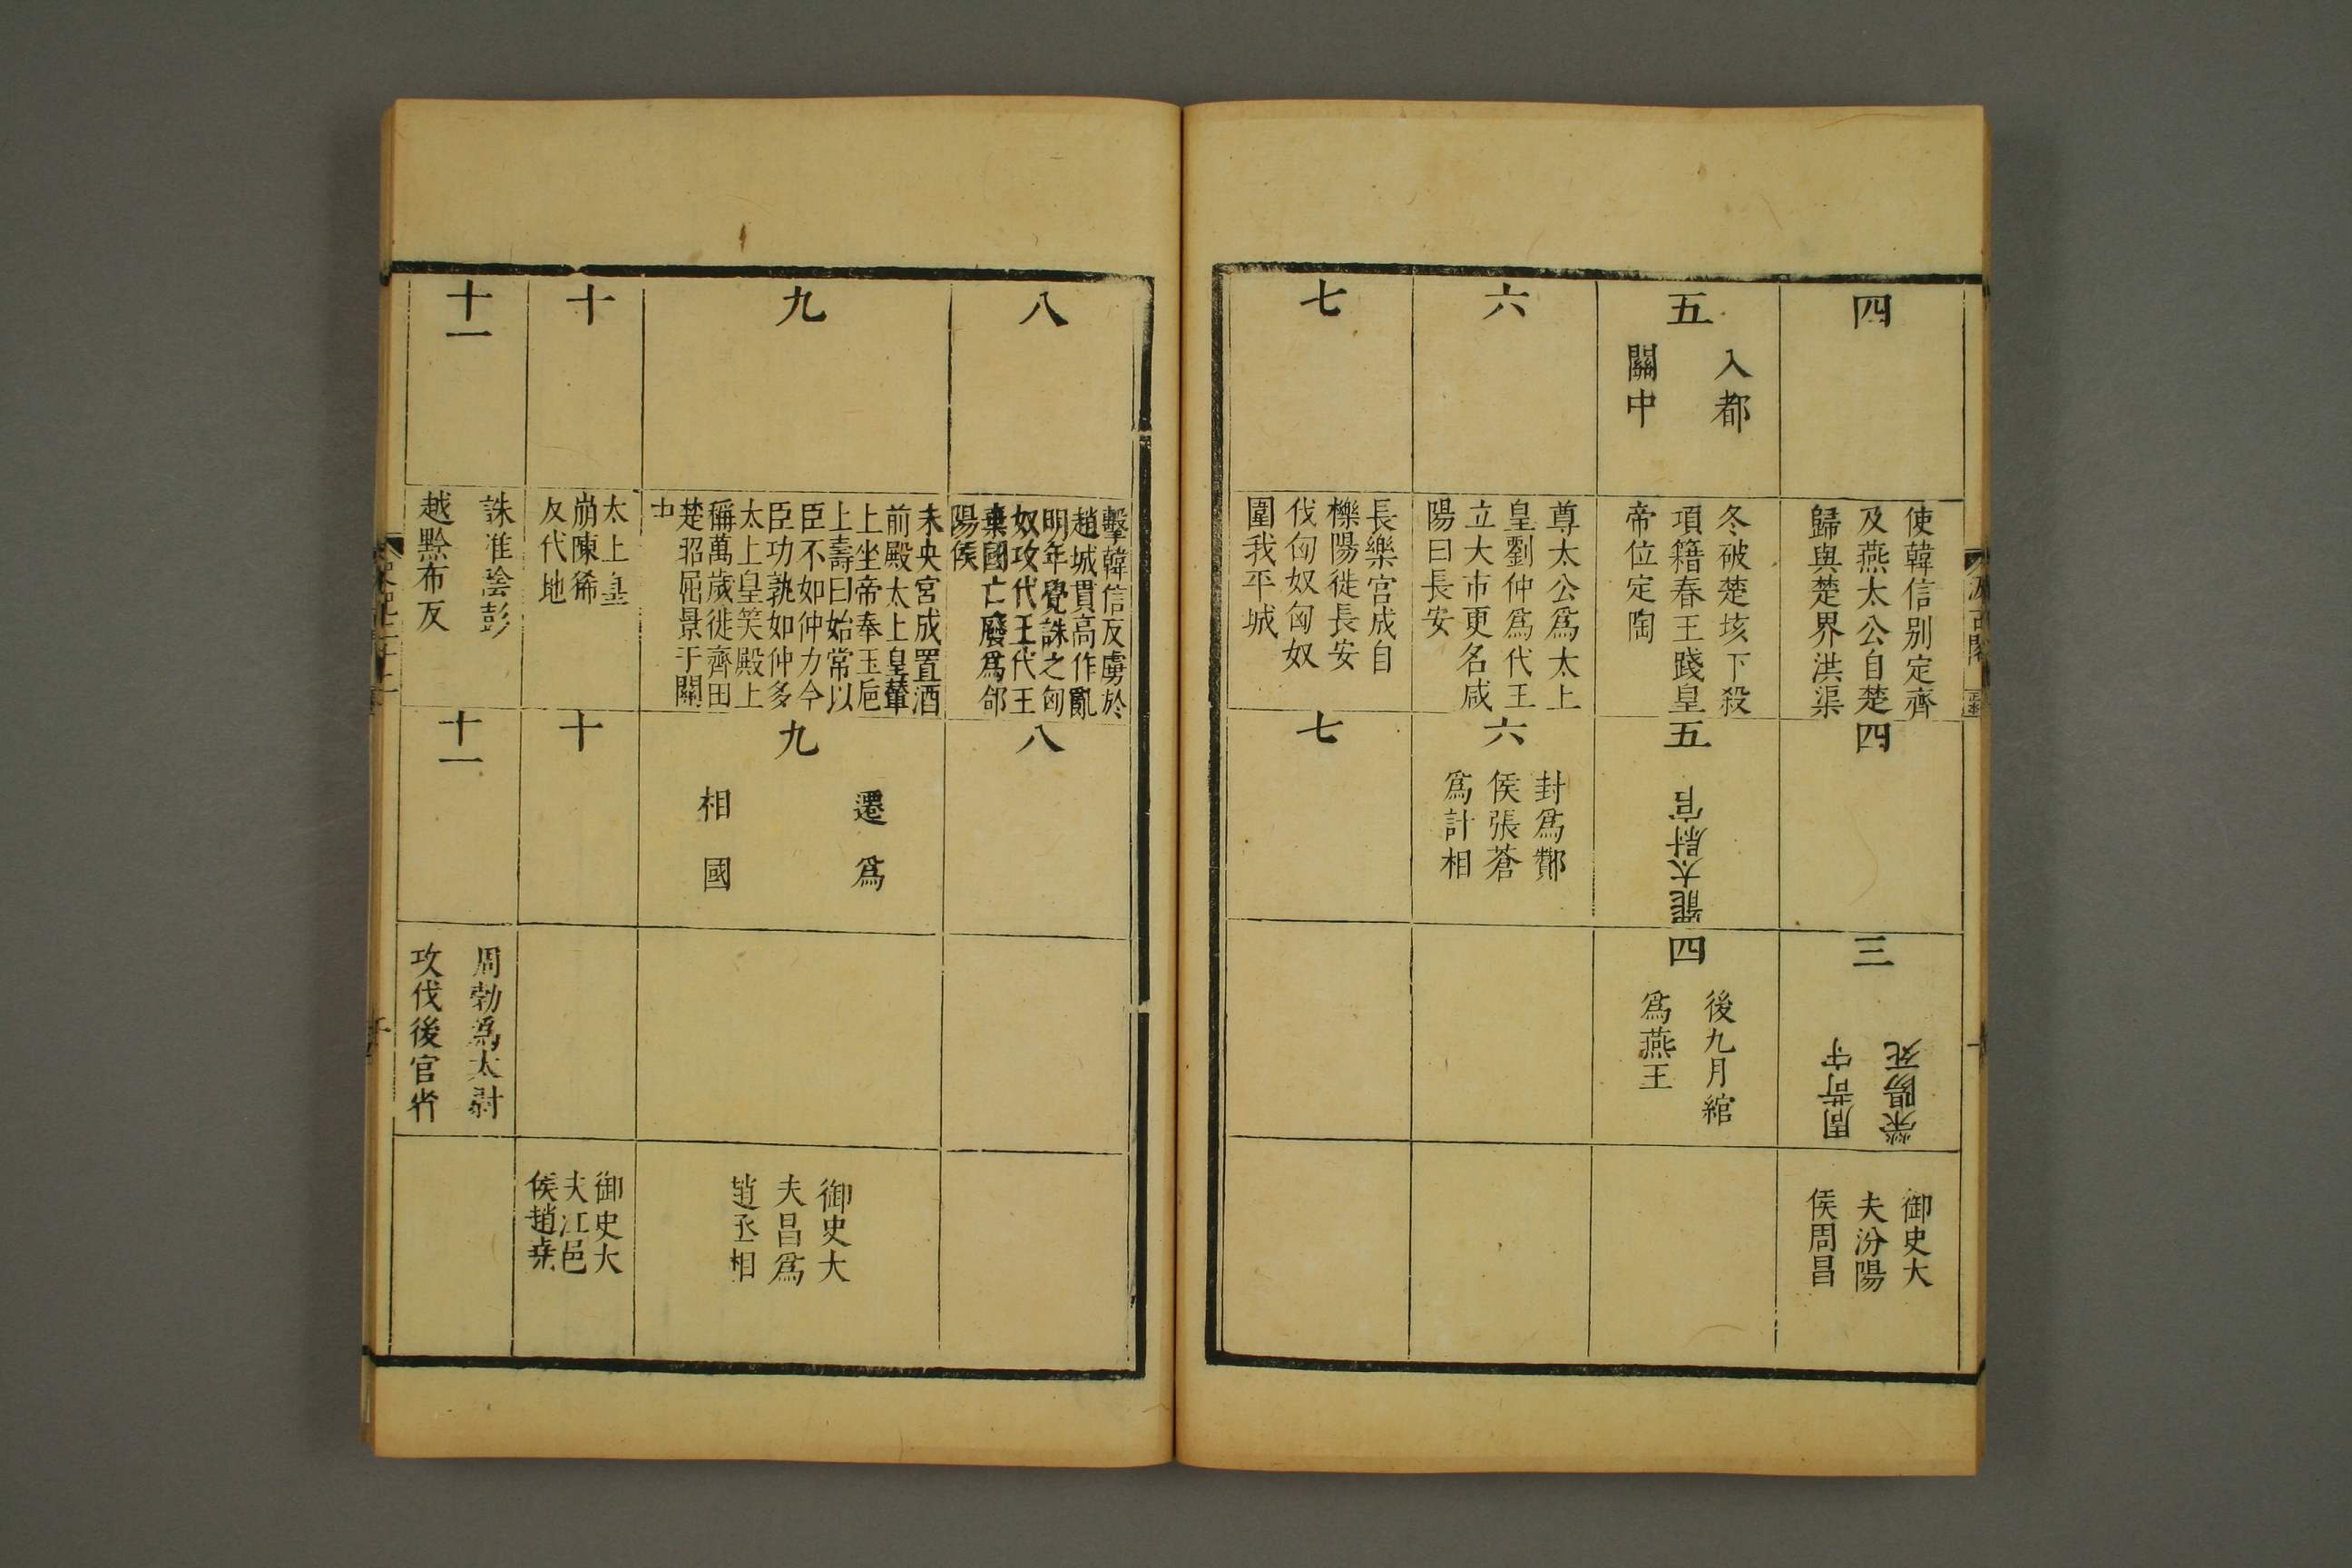 四
使韓信别定齊
及燕太公自楚
歸與楚界洪渠
四
三
周苛守
滎陽死
御史大
夫汾陽
侯周昌
五
入都
關中
冬破楚垓下殺
項籍春王踐皇
帝位定陶
五
罷太尉官
四
後九月綰
爲燕王
六
尊太公爲太上
皇劉仲爲代王
立大市更名咸
陽曰長安
六
封爲酇
侯張蒼
爲計相
七
長樂宮成自
櫟陽徙長安
伐匈奴匈奴
圍我平城
七
八
擊韓信反虜於
趙城貫高作亂
明年覺誅之匈
奴攻代王代王
棄國亡廢爲郃
陽侯
八
九
未央宮成置酒
前殿太上皇輦
上坐帝奉玉巵
上壽曰始常以
臣不如仲力今
臣功孰如仲多
太上皇笑殿上
稱萬歲徙齊田
楚昭屈景于關
中
九
遷爲
相國
御史大
夫昌爲
趙丞相
十
太上皇
崩陳豨
反代地
十
御史大
夫江邑
侯趙堯
十一
誅淮陰彭
越黥布反
十一
周勃爲太尉
攻伐後官省